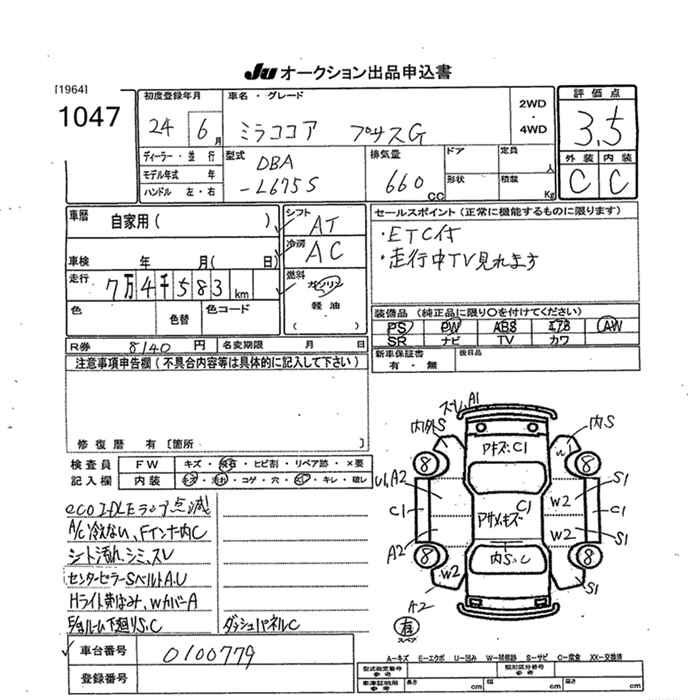 Ju オークション出品申込書
[1964]
1047
初度登録年月
24 6月
車名・グレード
ミラココア プラスG
2WD
・
4WD
評価点
3.5
外装 内装
C C
ディーラー・並行
モデル年式 年
ハンドル 左・右
型式
DBA
-L675S
排気量
660 cc
ドア
形状
定員 人
積載 Kg
車歴
自家用( )
車検 年 月( 日)
走行
7万4千583km
色
色替
色コード
シフト
AT
冷房
AC
燃料
ガソリン
軽油
( )
セールスポイント(正常に機能するものに限ります)
・ETC付
・走行中TV見れます
装備品(純正品に限り○を付けてください)
PS PW ABS エアB AW
SR ナビ TV カワ
新車保証書
有・無
後日品
R券 8140円
名変期限 月 日
注意事項申告欄(不具合内容等は具体的に記入して下さい)
修復歴 有[箇所 ]
検査員
記入欄
FW キズ・飛石・ヒビ割・リペア跡・×要
内装 キズ・汚れ・コゲ・穴・・キレ・破レ
eco IDLEランプ点滅
A/C冷えない、Fインナー内C
シート汚れ、シミ、スレ
センターピラーSベルトA.U
Hライト黄ばみ、WカバーA
下廻りS.C
ダッシュパネルC
車台番号 0100779
登録番号
スレ、A1
内外S
内S
アキズ・C1
8
8
A2
C1
A2
W2
A2
C1
内S、C
W2
W2
S1
C1
S1
S1
8
8
有
スペア
A－キズ E－エクボ U－凹み W－補修跡 S－サビ C－腐食 XX－交換済
型式指定番号
類別区分番号
参考
長さ cm 幅 cm 高さ cm